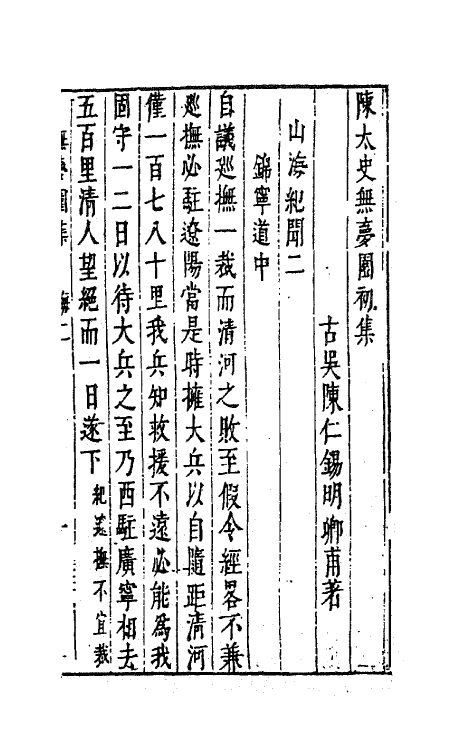 陳太史無夢園初集
古吳陳仁錫明卿甫著
山海紀聞二
錦寧道中
自議巡撫一裁而清河之敗至假令經畧不兼
巡撫必駐遼陽當是時擁大兵以自隨距清河
僅一百七八十里我兵知救援不遠必能爲我
固守一二日以待大兵之至乃西駐廣寧相去
五百里清人望絕而一日遂下 紀遼撫不宜裁
無夢園集 海二 一